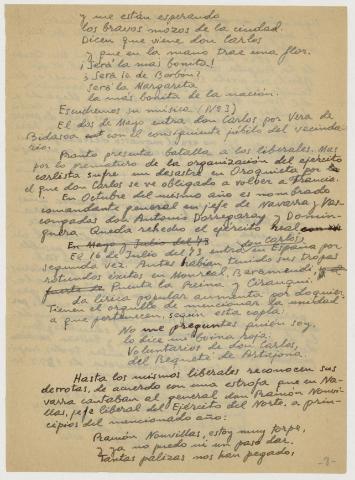 y me están esperando
los bravos mozos de la ciudad.
Dicen que viene don Carlos
y que en la mano trae una flor.
¡Será la más bonita!
¿Será la de Borbón?
Será la Margarita
la más bonita de la nación.
Escuchemos su música (Nº 23)
El dos de Mayo entra don Carlos por Vera de
Bidasoa con el consiguiente júbilo del vecinda-
rio.
Pronto presenta batalla a los liberales. Mas
por lo prematuro de la organización del ejército
carlista sufre un desastre en Oroquieta por
el que don Carlos se ve obligado a volver a Francia.
En Octubre del mismo año es nombrado
comandante general en jefe de Navarra y Vas-
congadas don Antonio Dorregaray y Domin-
guera. Queda rehecho el ejército real
En Mayo y Julio del 73 don Carlos
El 16 de Julio del 73 entró en España por
segunda vez. Antes habían tenido sus tropas
rotundos éxitos en Monreal, Beramendi,
Puente la Reina y Cirauqui.
La lírica popular aumenta por doquier.
Tienen el orgullo de mencionar la unidad
a que pertenecen, según esta copla:
No me preguntes quién soy.
lo dice mi boina roja,
Voluntarios de don Carlos,
del Requeté de Artajona.
Hasta los mismos liberales reconocen sus
derrotas, de acuerdo con una estrofa que en Na-
varra cantaban al general don Ramón Nouvi-
llas, jefe liberal del Ejército del Norte, a prin-
cipios del mencionado año:
Ramón Nouvillas, estoy muy torpe,
y ya no puedo ni un paso dar.
Tantas palizas nos han pegado,